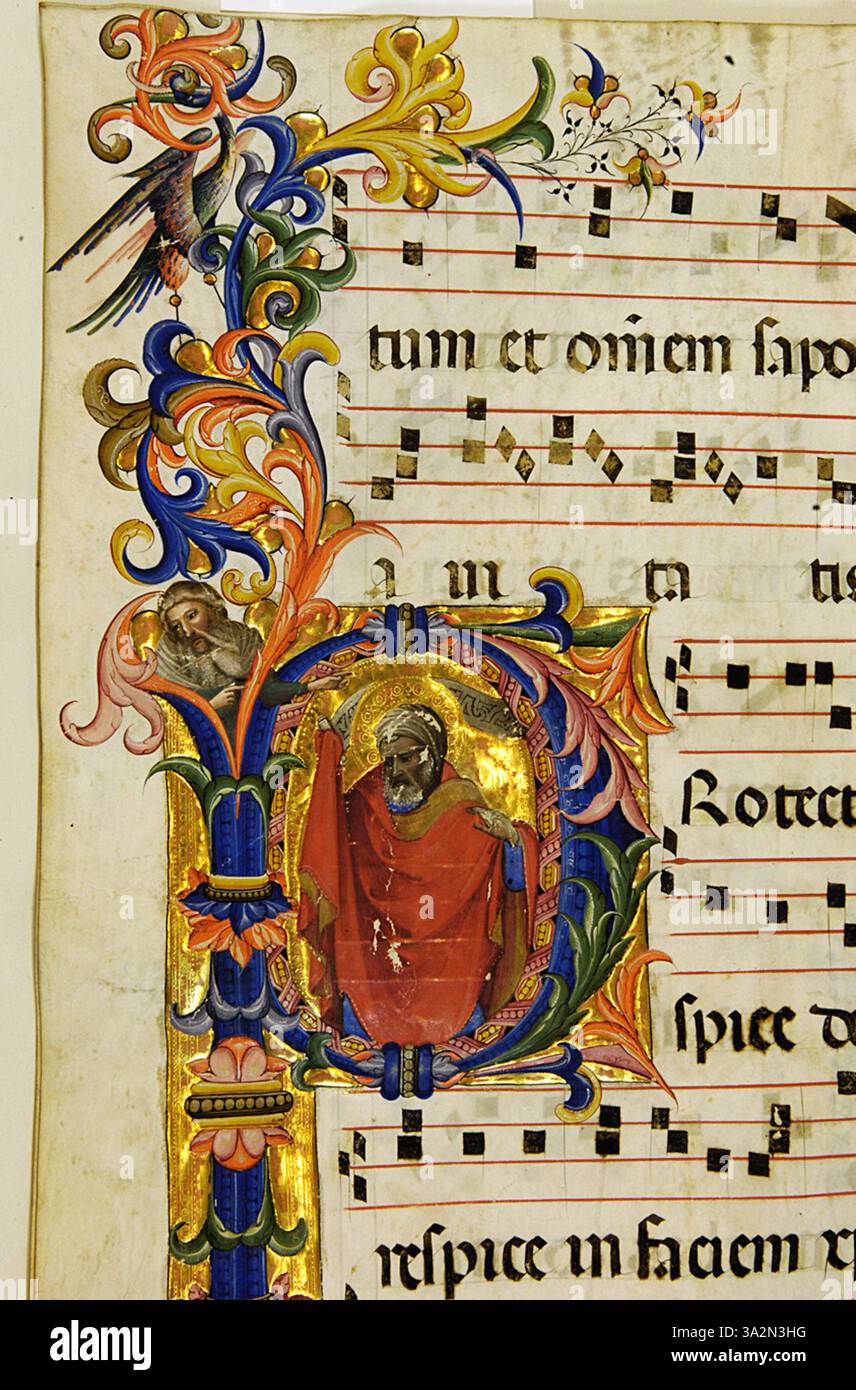 tum et om̅em sapo
a ui ta tis
Rotect
spice de
respice in faciem xp
alamy
Image ID: 3A2N3HG
www.alamy.com